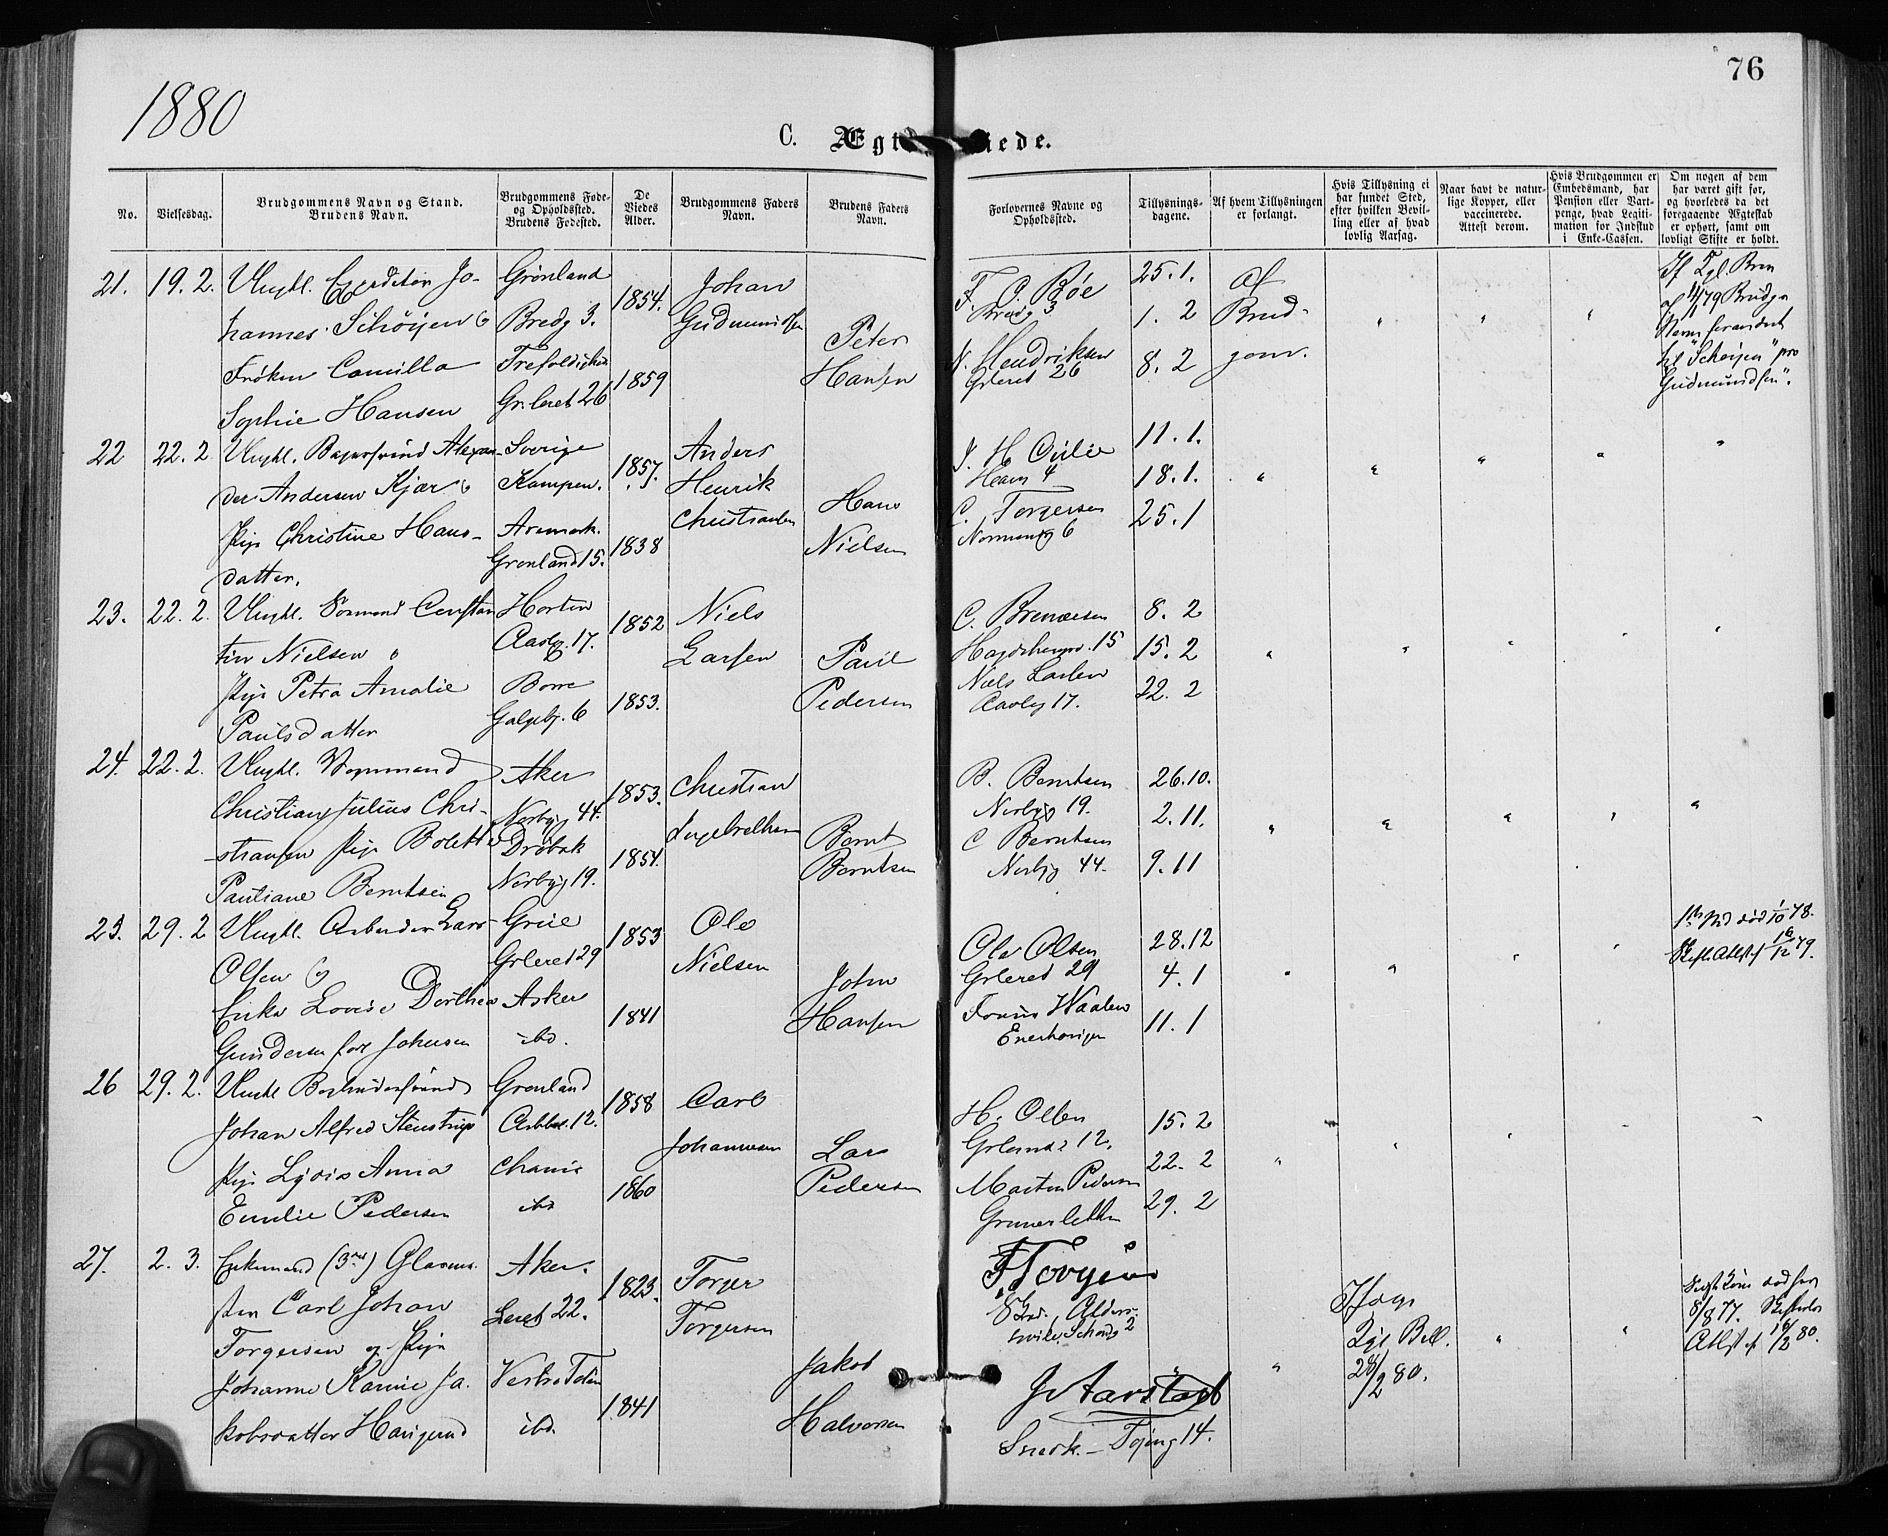 1880
76
C. Ægt iede.
No.
Vielsesdag.
Brudgommens Navn og Stand.
Brudens Navn.
Brudgommens Føde-
og Opholdssted.
Brudens Fødested.
De
Viedes
Alder.
Brudgommens Faders
Navn.
Brudens Faders
Navn.
Forlovernes Navne og
Opholdssted.
Tillysnings-
dagene.
Af hvem Tillysningen
er forlangt.
Hvis Tillysning ei
har fundet Sted,
efter hvilken Bevil-
ling eller af hvad
lovlig Aarsag.
Naar havt de natur-
lige Kopper, eller
vaccinerede.
Attest derom.
Hvis Brudgommen er
Embedsmand, har
Pension eller Vart-
penge, hvad Legiti-
mation for Indskud
i Enke-Cassen.
Om nogen af dem
har været gift før,
og hvorledes da det
foregaaende Ægteskab
er ophørt, samt om
lovligt Skifte er holdt.
21. 19. 2. Ungkl. Expeditør Jo-
hannes Schøijen og
Frøken Camilla
Sophie Hansen
Grønland
Bredg 3.
Gr.leret 26
1854.
1859
Johan
Gudmundsen
Peter
Hansen
F. C. Bøe
Bredg 3
N. Hendriksen
Grleret 26
25. 1.
1. 2
8. 2
af
Brud-
gom.
If Kgl. Bev
Navn forandret
til "Schøijen" pro
Gudmundsen".
22 22. 2 Ungkl. Bagersvend Alexan-
der Andersen Kjær og
Pige Christine Hans-
datter.
Sverige
Kampen.
Aremark.
Grønland 15.
1857.
1838
Anders
Henrik
Christiansen
Hans
Nielsen
Havn 4
C. Torgersen
Normansg 6
11. 1.
18. 1.
25. 1
23. 22. 2. Ungkl. Sømand Constan
tin Nielsen
Pige Petra Amalie
Paulsdatter
Horten
Aasbg. 17.
Borre
Galgebg. 6
1852
1853.
Niels
Larsen
Paul
Pedersen
Niels Larsen
Aasbg 17.
8. 2
15. 2
22. 2
24. 22. 2. Ungkl. Vognmand
Christian Julius Chri-
stiansen Pige Bolette
Pauliane Berntsen
Aker
Norbyg 44.
Drøbak
Norbyg 19.
1853.
1854.
Christian
Ingebrethsen
Bernt
Berntsen
B. Berntsen
Norbyg 19.
C Berntsen
Norbyg 44.
26.10.
2.11.
9.11
25. 29. 2 Ungkl. Arbeider Lars
Olsen og
Enke Lovise Dorthea
Gundersen født Johnsen
Grue
Grleret 29
Asker
ibd.
1853
1841
Ole
Nielsen
John
Hansen
Ole Olsen
Grleret 29
Waaler
Enerhaugen
28.12
4. 1
11. 1
26 29. 2. Ungkl
Johan Alfred Stenstrup
Pige Lovise Anna
Emilie Pedersen
Grønland
Chania
ibd
1858
1860
Carl
Johannesen
Lars
Pedersen
H. Olsen
Grland 12.
Morten Pedersen
Grünerløkken
15. 2
22. 2
29. 2
27. 2. 3. Enkemand (3die) Glasme-
ster Carl Johan
Torgersen og Pige
Johanne Karine Ja-
kobsdatter Haugerud
Aker.
Leret 22.
Vestre Toten
ibd.
1823.
1841
Torger
Torgersen
Jakob
Halvorsen
J Aarstad
Snedk. Tøieng 14.
Ifølge
Kgl. Bev.
28/2 80.
8/8 77.